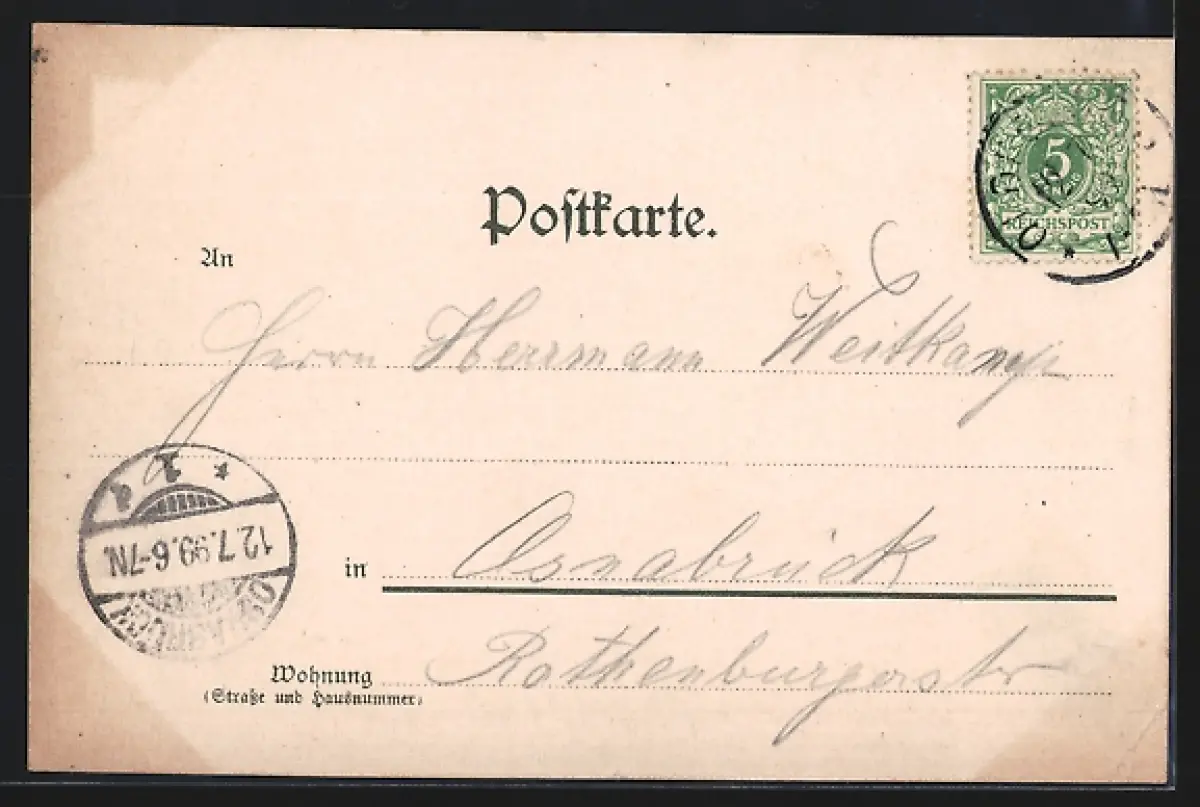 Postkarte.
5
REICHSPOST
An
Herrn Herrmann Weitkamp
1
12.7.99.6-7N.
OSNABRÜCK
in Osnabrück
Wohnung
(Straße und Hausnummer)
Rothenburgerstr